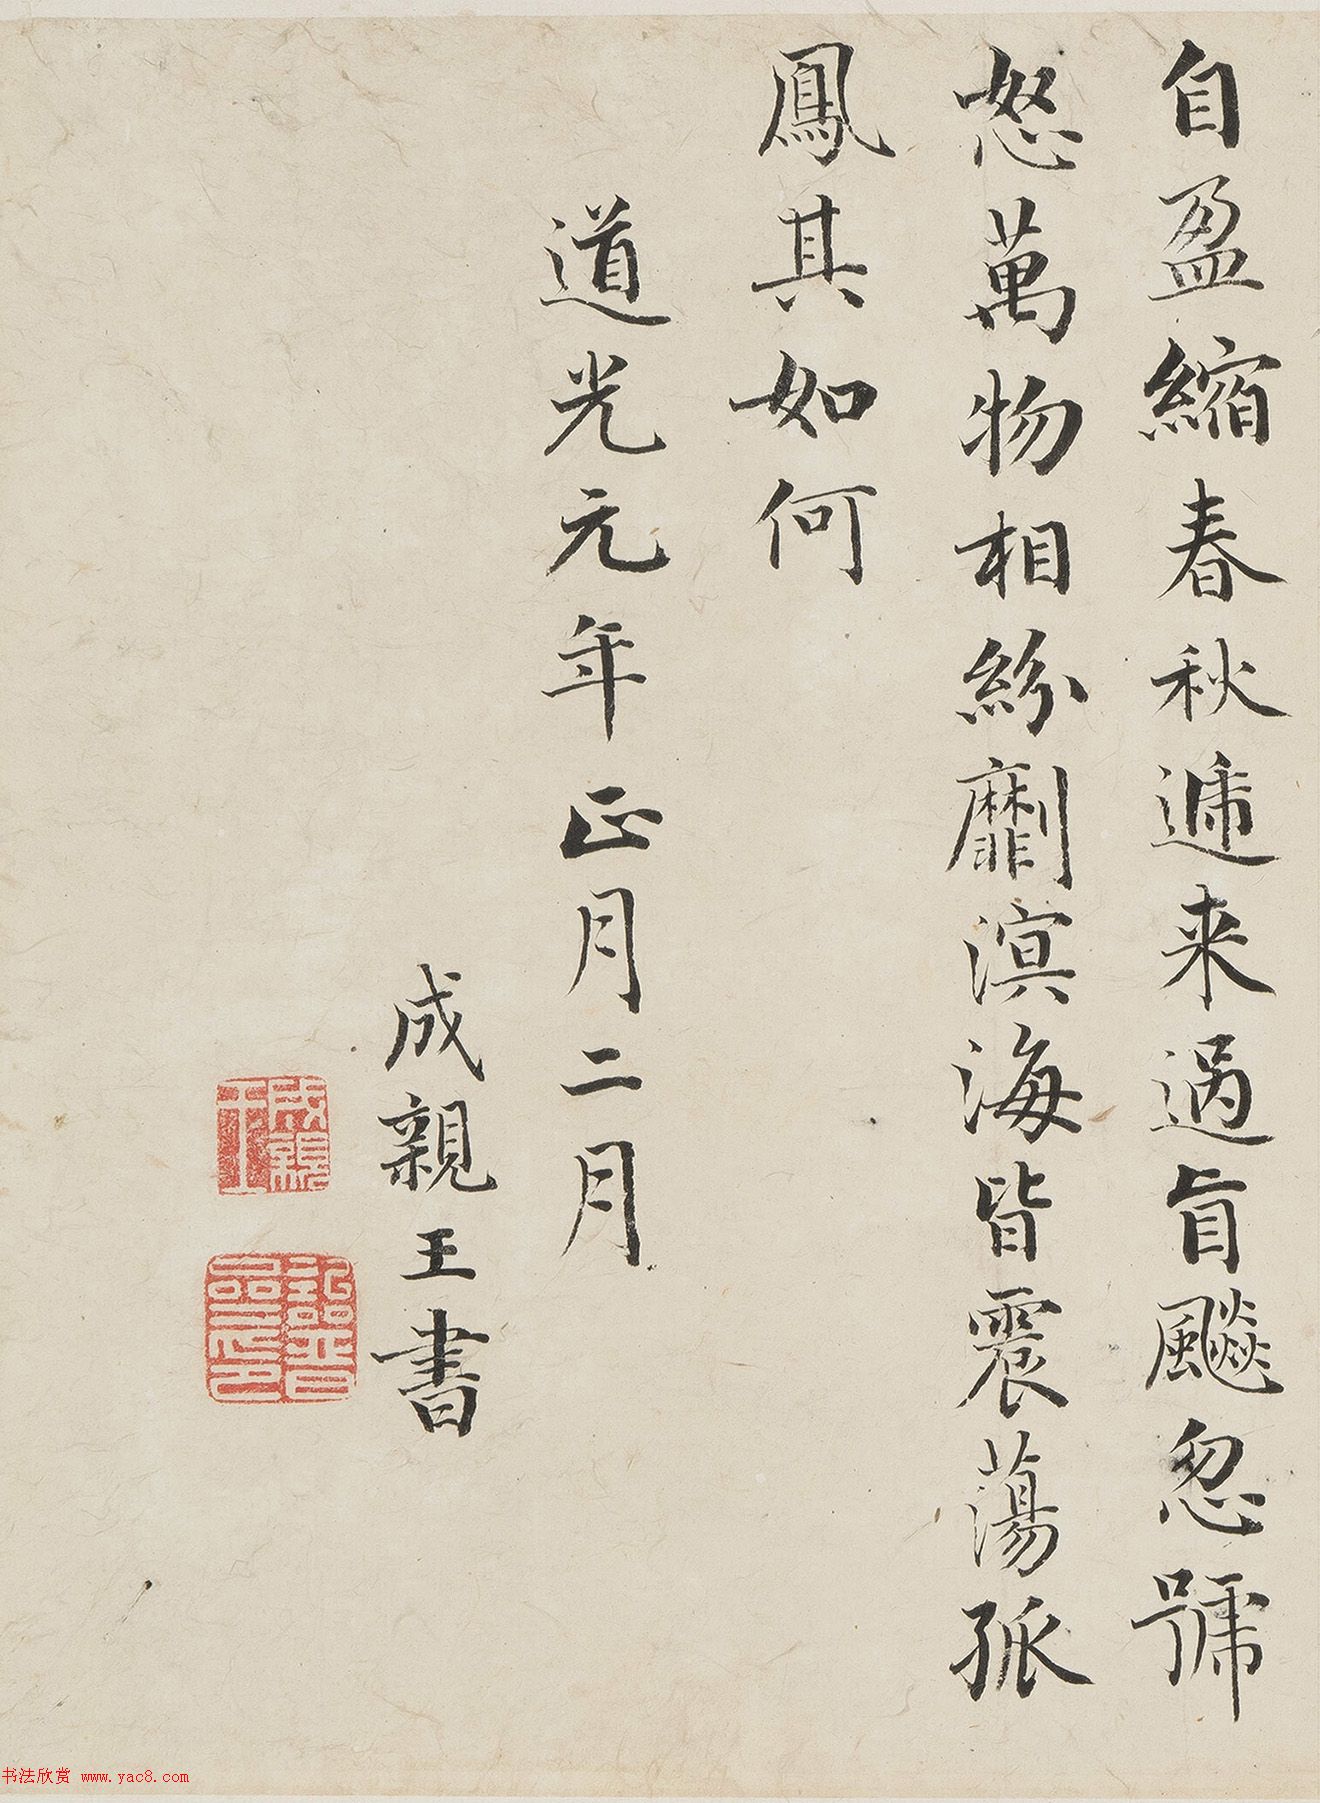 自盈縮春秋遞来過盲飈忽號
怒萬物相紛劘溟海皆震蕩孤
鳳其如何
道光元年正月二月
成親王書
成親王
书法欣赏 www.yac8.com